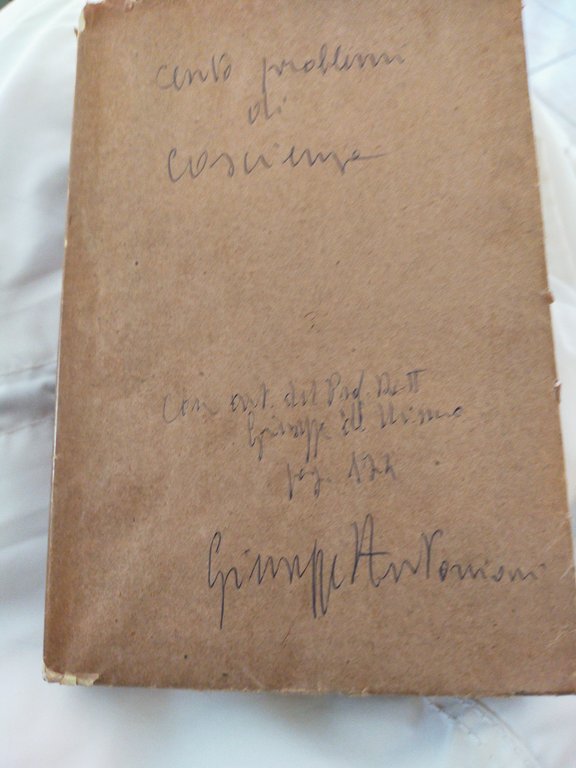 cento problemi
di
coscienza
Con art. del Prof. Dott
Giuseppe
pag. 124
Giuseppe Antonioni